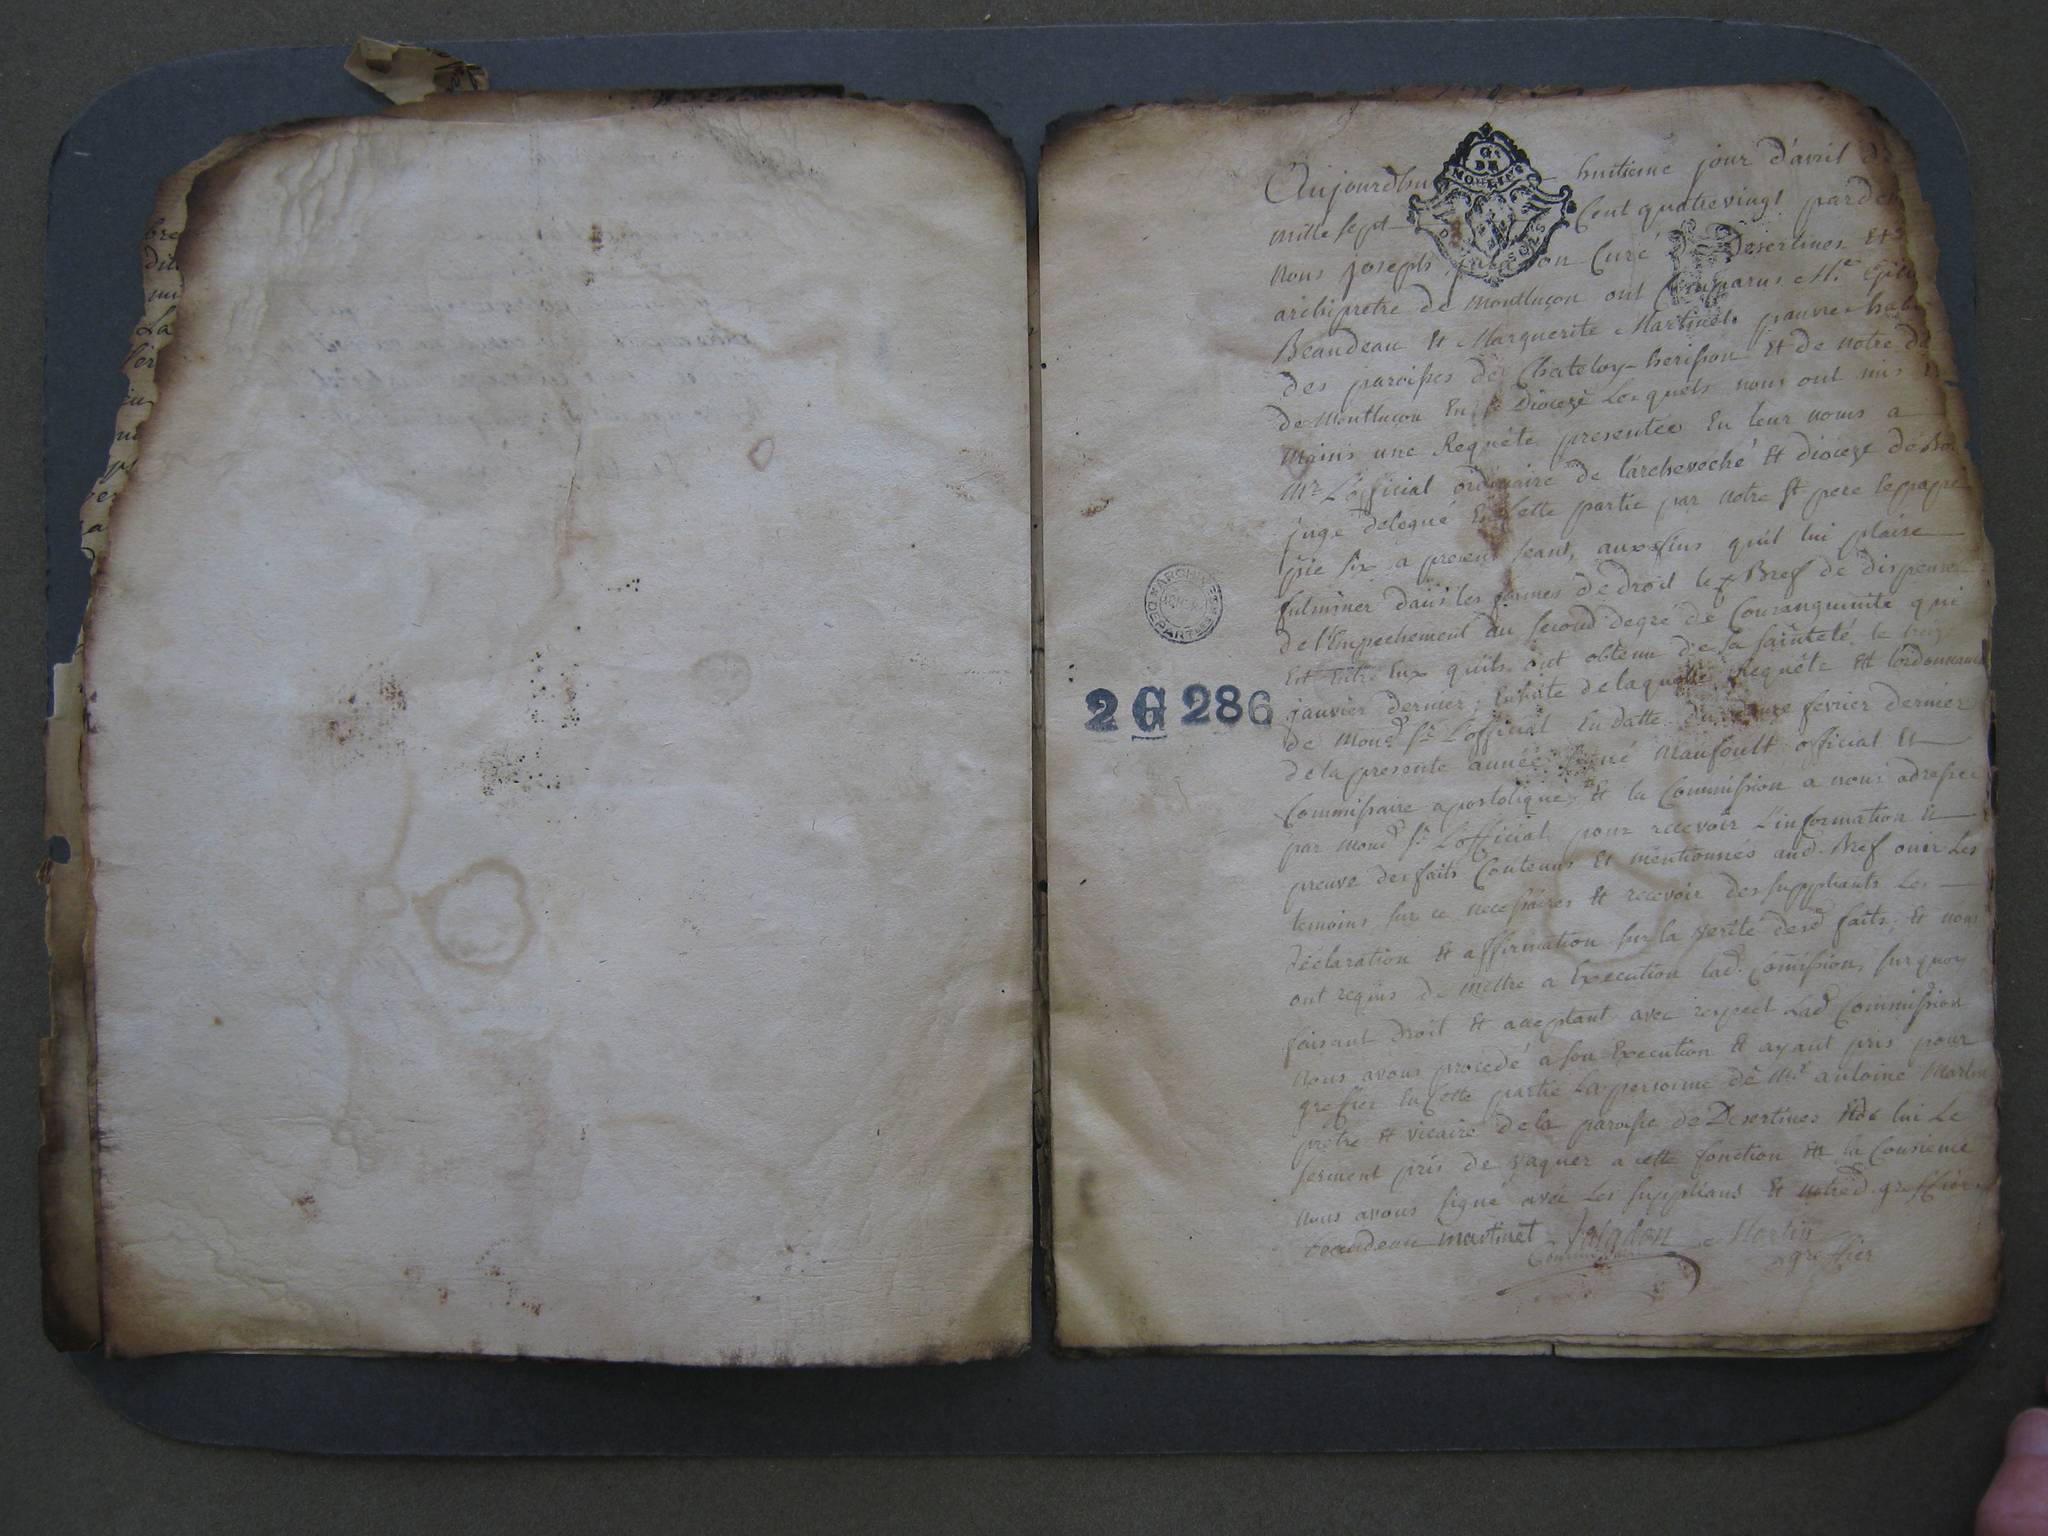 Aujourdhuy huitieme jour d'avril
mille sept Cent quatrevingt pardev
nous joseph jaladon Curé Desertines Et
archipretre de montluçon ont Comparus Mr.
Beaudeau Et Marguerite Martinet pauvres
des paroisses de Chateloy-herisson Et de notre
de Montluçon En ce Dioceze Lesquels nous ont mis
mains une Requête presentée En leur noms a
Mr. L'official ordinaire de l'archeveché Et dioceze de Bo
juge delegué En Cette partie par notre St pere lepape
pie six a present seant, aux fins qu'il lui plaise
fulminer dans les formes de droit le Bref de dispense
de l'Empechement du second degré de Consanguinité qui
Est Entre Eux quils ont obtenu de sa sainteté le
janvier dernier; Ensuite de laquelle Requête Est l'ordonnance
de mond. sr. L'official En datte du fevrier dernier
de la presente année signé Manfoult official Et
Commissaire apostolique, Et la Commission a nous adressée
par mond. sr. L'official pour recevoir L'information Et
preuve des faits Contenus Et mentionnés aud. Bref ouir Les
temoins sur ce necessaires Et recevoir des suppliants Les
déclaration Et affirmation sur la verité desd. faits, Et nous
ont requis de mettre a Execution lad. Commission, surquoy
faisant droit Et acceptant avec respect Lad. Commission
nous avons procedé a son Execution Et ayant pris pour
greffier En Cette partie La personne de Mre antoine Martin
prêtre Et vicaire de la paroisse de Desertines Et de lui Le
serment pris de vaquer a cette fonction Et
nous avons signé avec Les supplians Et notred. greffier
beaudeau martinet Jaladon Martin
Commissaire greffier
Gt
DE
MOULINS
ARCHIVES
DEPARTles
2 G 286